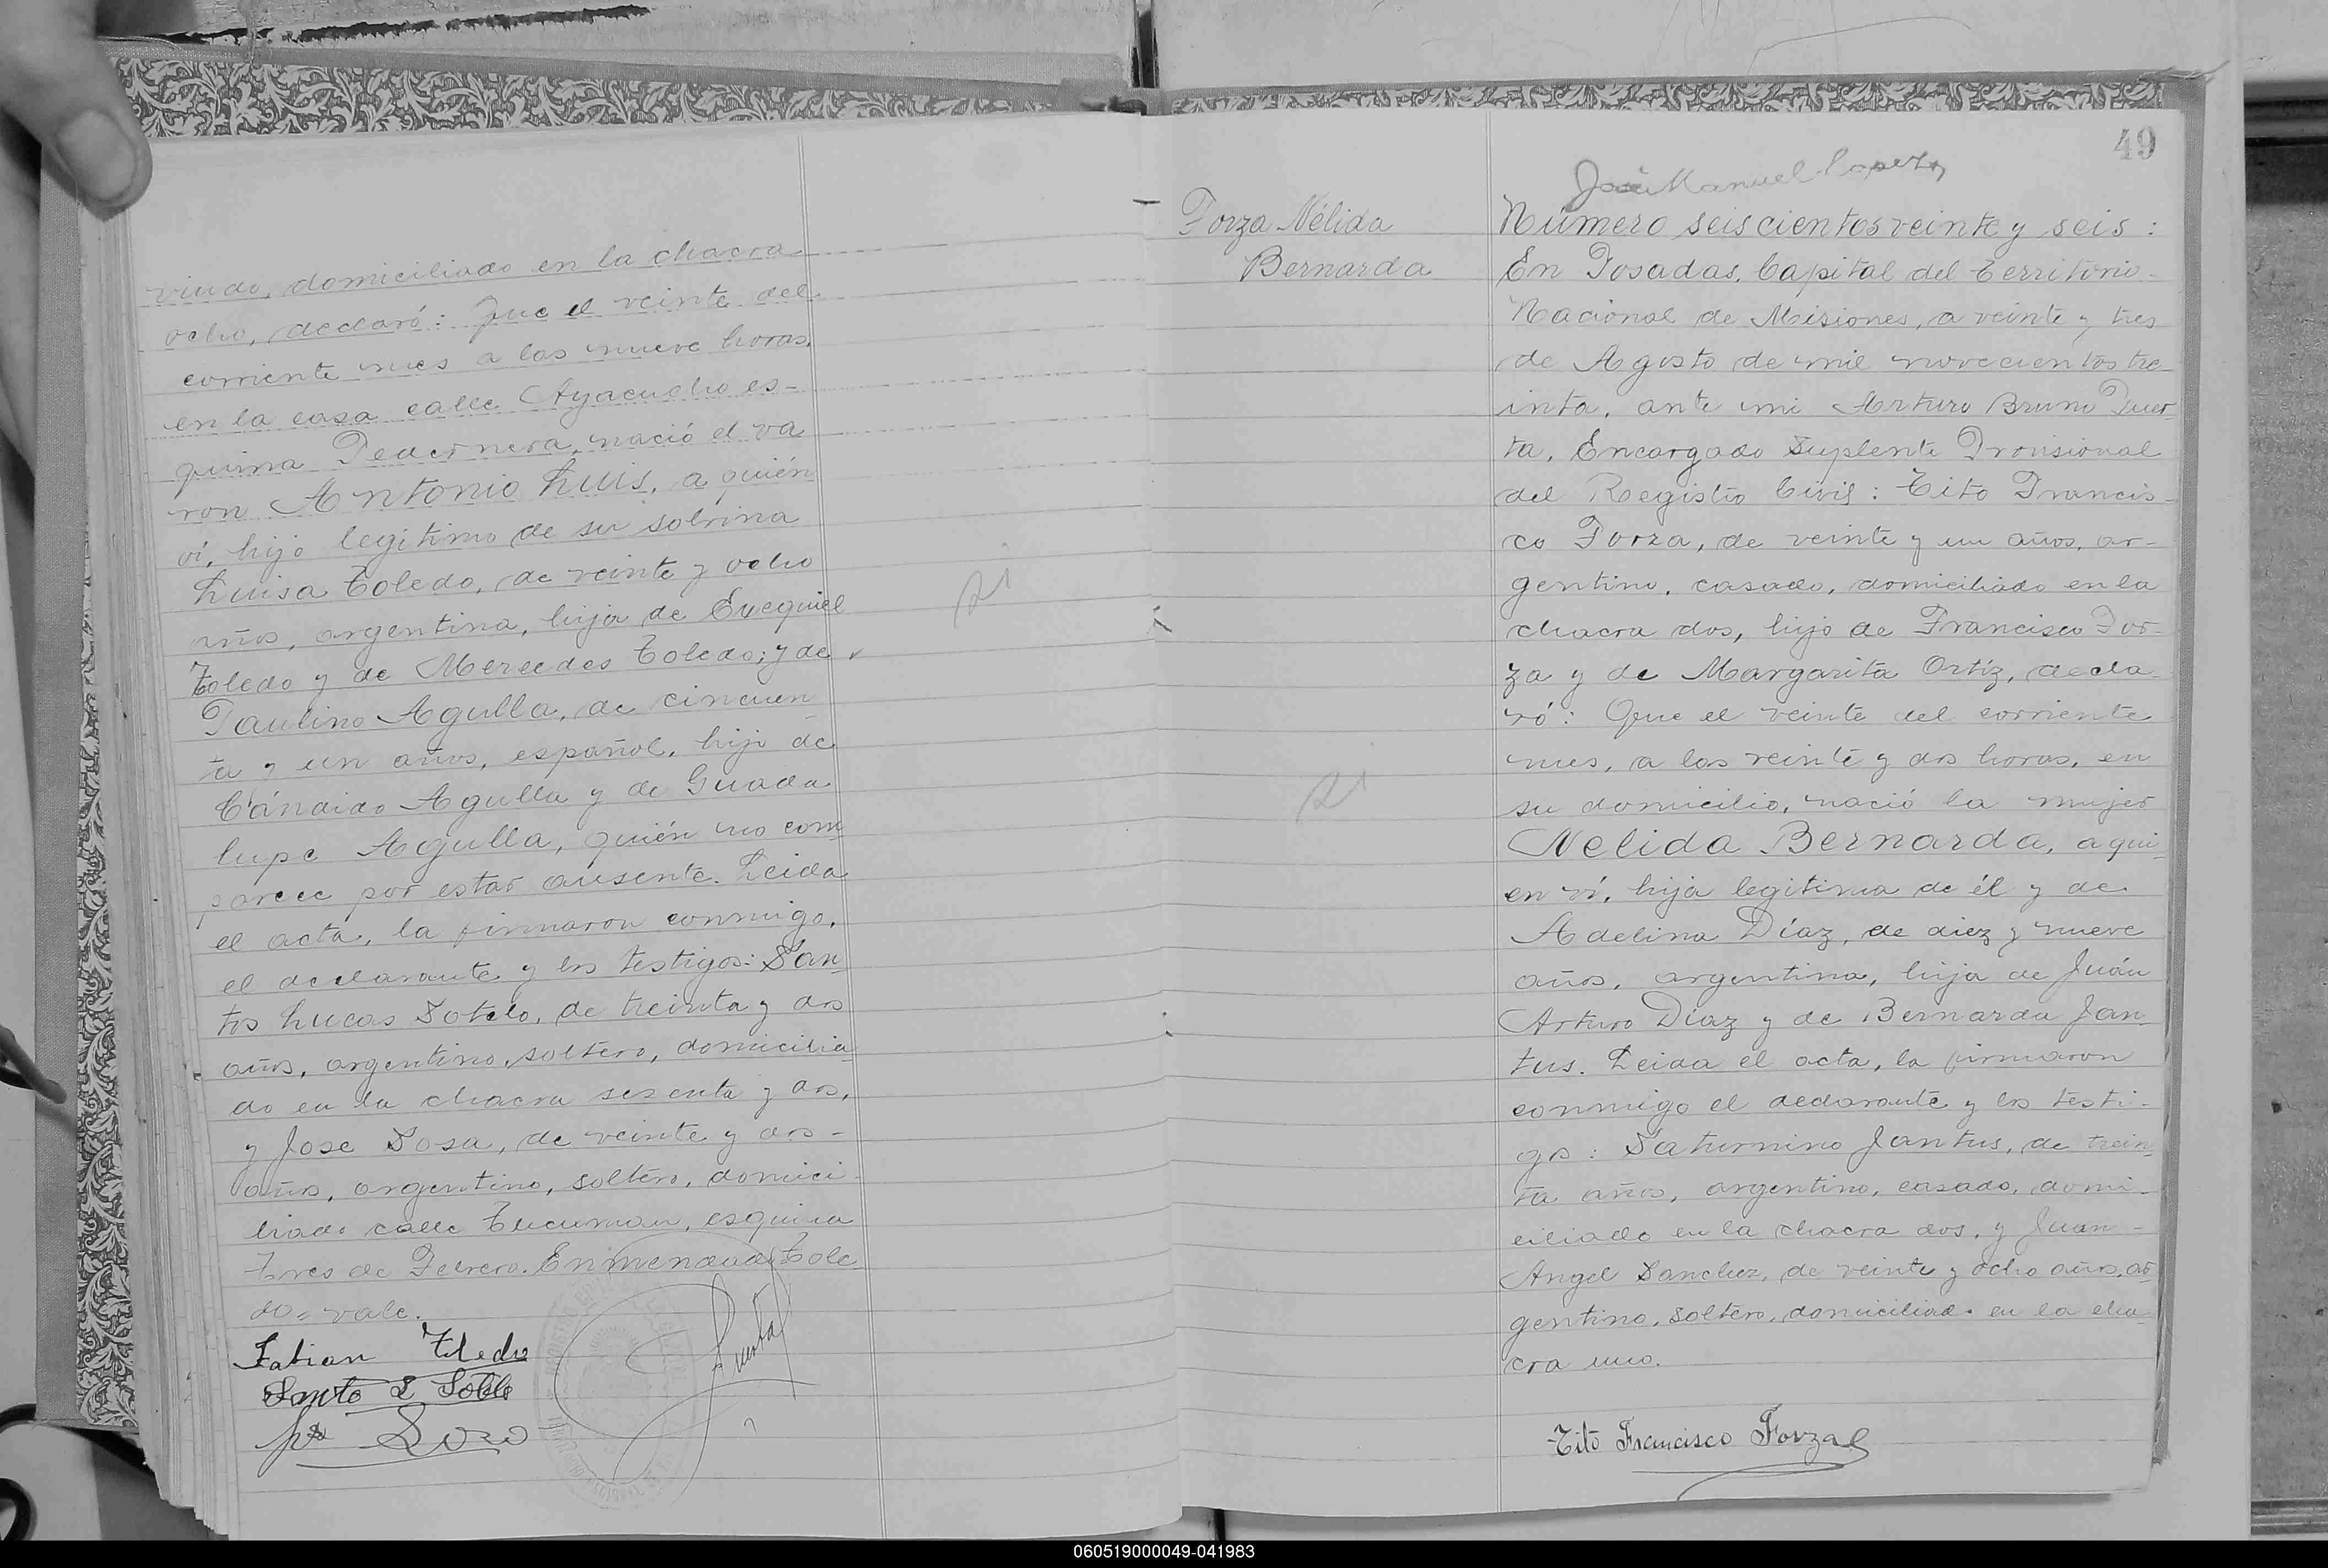 viudo, domiciliado en la chacra
ocho, declaró: Que el veinte del
corriente mes a las nueve horas,
en la casa calle Ayacucho es-
quina Pedernera, nació el va
ron Antonio Luis, a quién
ví, hijo legítimo de su sobrina
Luisa Toledo, de veinte y ocho
años, argentina, hija de Exequiel
Toledo y de Mercedes Toledo; y de
Paulino Agulla, de cincuen
ta y un años, español, hijo de
Cándido Agulla y de Guada
lupe Agulla, quién no com
parece por estar ausente. Leida
el acta, la firmaron conmigo,
el declarante y los testigos: San
tos Lucas Sotelo, de treinta y dos
años, argentino, soltero, domicilia
do en la chacra sesenta y dos,
y Jose Sosa, de veinte y dos-
años, argentino, soltero, domici-
liado calle Tucuman, esquina
Tres de Febrero. Enmendado Tole
do = vale.
Fabian Toledo
Santo L Sotelo
Puerta
49
José Manuel Lopez
Forza Nélida
Bernarda
Número seiscientos veinte y seis:
En Posadas, Capital del Territorio-
Nacional de Misiones, a veinte y tres
de Agosto de mil novecientos tre
inta, ante mi Arturo Bruno Puer
ta, Encargado Suplente Provisional
del Registro Civil: Tito Francis-
co Forza, de veinte y un años, ar-
gentino, casado, domiciliado en la
chacra dos, hijo de Francisco For-
za y de Margarita Ortíz, decla-
ró: Que el veinte del corriente
mes, a las veinte y dos horas, en
su domicilio, nació la mujer
Nelida Bernarda, a qui-
en ví, hija legitima de él y de
Adelina Díaz, de diez y nueve
años, argentina, hija de Juán
Arturo Díaz y de Bernarda Jan
tus. Leida el acta, la firmaron
conmigo el declarante y los testi-
gos: Saturnino Jantus, de trein
ta años, argentino, casado, domi-
ciliado en la chacra dos, y Juan-
Angel Sanchez, de veinte y ocho años, ar
gentino, soltero, domiciliado en la cha-
cra uno.
Tito Francisco Forza
21
21
060519000049-041983